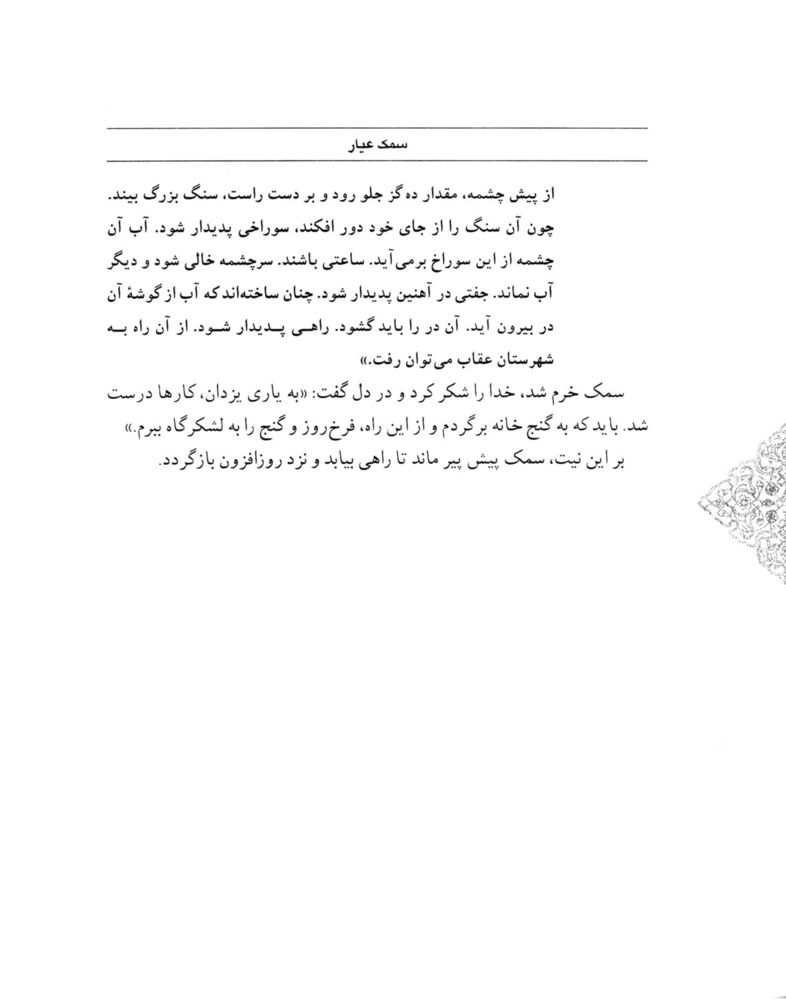 سمک عیار
از پیش چشمه، مقدار ده گز جلو رود و بر دست راست، سنگ بزرگ بیند.
چون آن سنگ را از جای خود دور افکند، سوراخی پدیدار شود. آب آن
چشمه از این سوراخ برمی‌آید. ساعتی باشند. سرچشمه خالی شود و دیگر
آب نماند. جفتی در آهنین پدیدار شود. چنان ساخته‌اند که آب از گوشهٔ آن
در بیرون آید. آن در را باید گشود. راهی پدیدار شود. از آن راه به
شهرستان عقاب می‌توان رفت.»
سمک خرم شد، خدا را شکر کرد و در دل گفت: «به یاری یزدان، کارها درست
شد. باید که به گنج خانه برگردم و از این راه، فرخ‌روز و گنج را به لشکرگاه ببرم.»
بر این نیت، سمک پیش پیر ماند تا راهی بیابد و نزد روزافزون بازگردد.